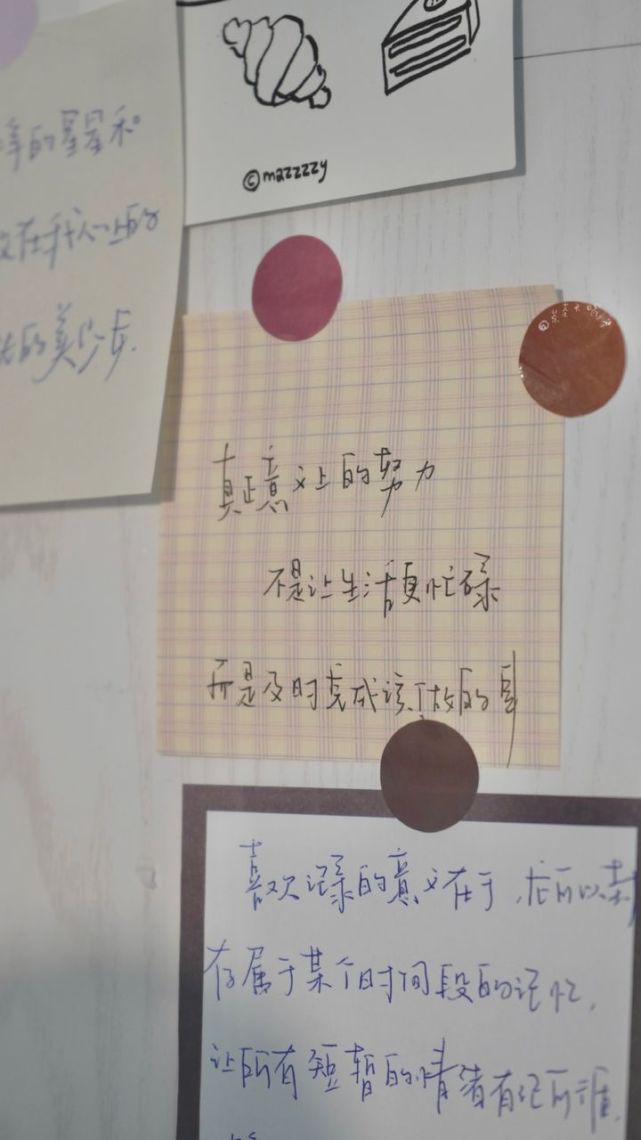 的星星和
在我心上的
的美少女.
©mazzzzy
真正意义上的努力
不是让生活更忙碌
而是及时完成该做的事
喜欢记录的意义在于,
存属于某个时间段的记忆,
让所有短暂的情绪有